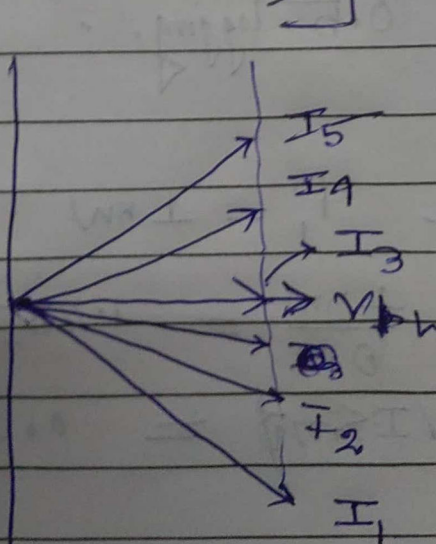 I5
I4
I3
V
I2
I1